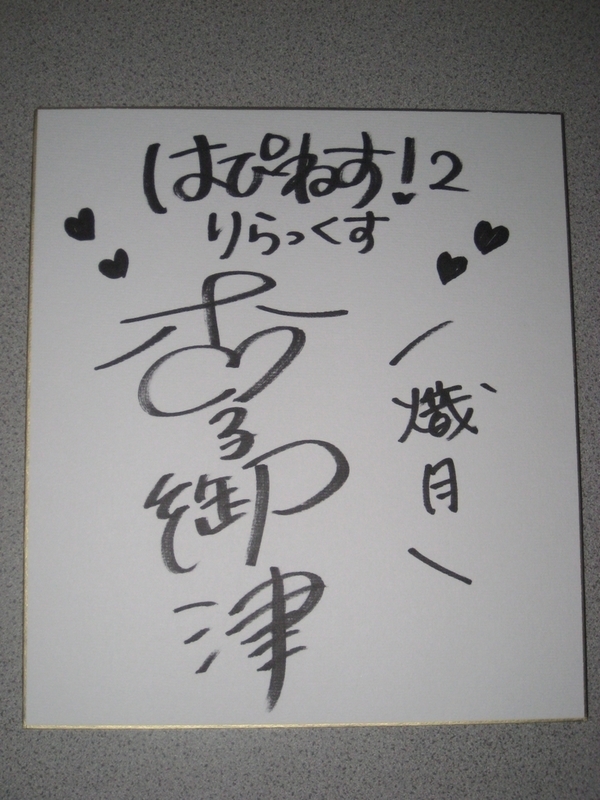 はぴねす!2
りらっくす
杏子御津
(熾月)